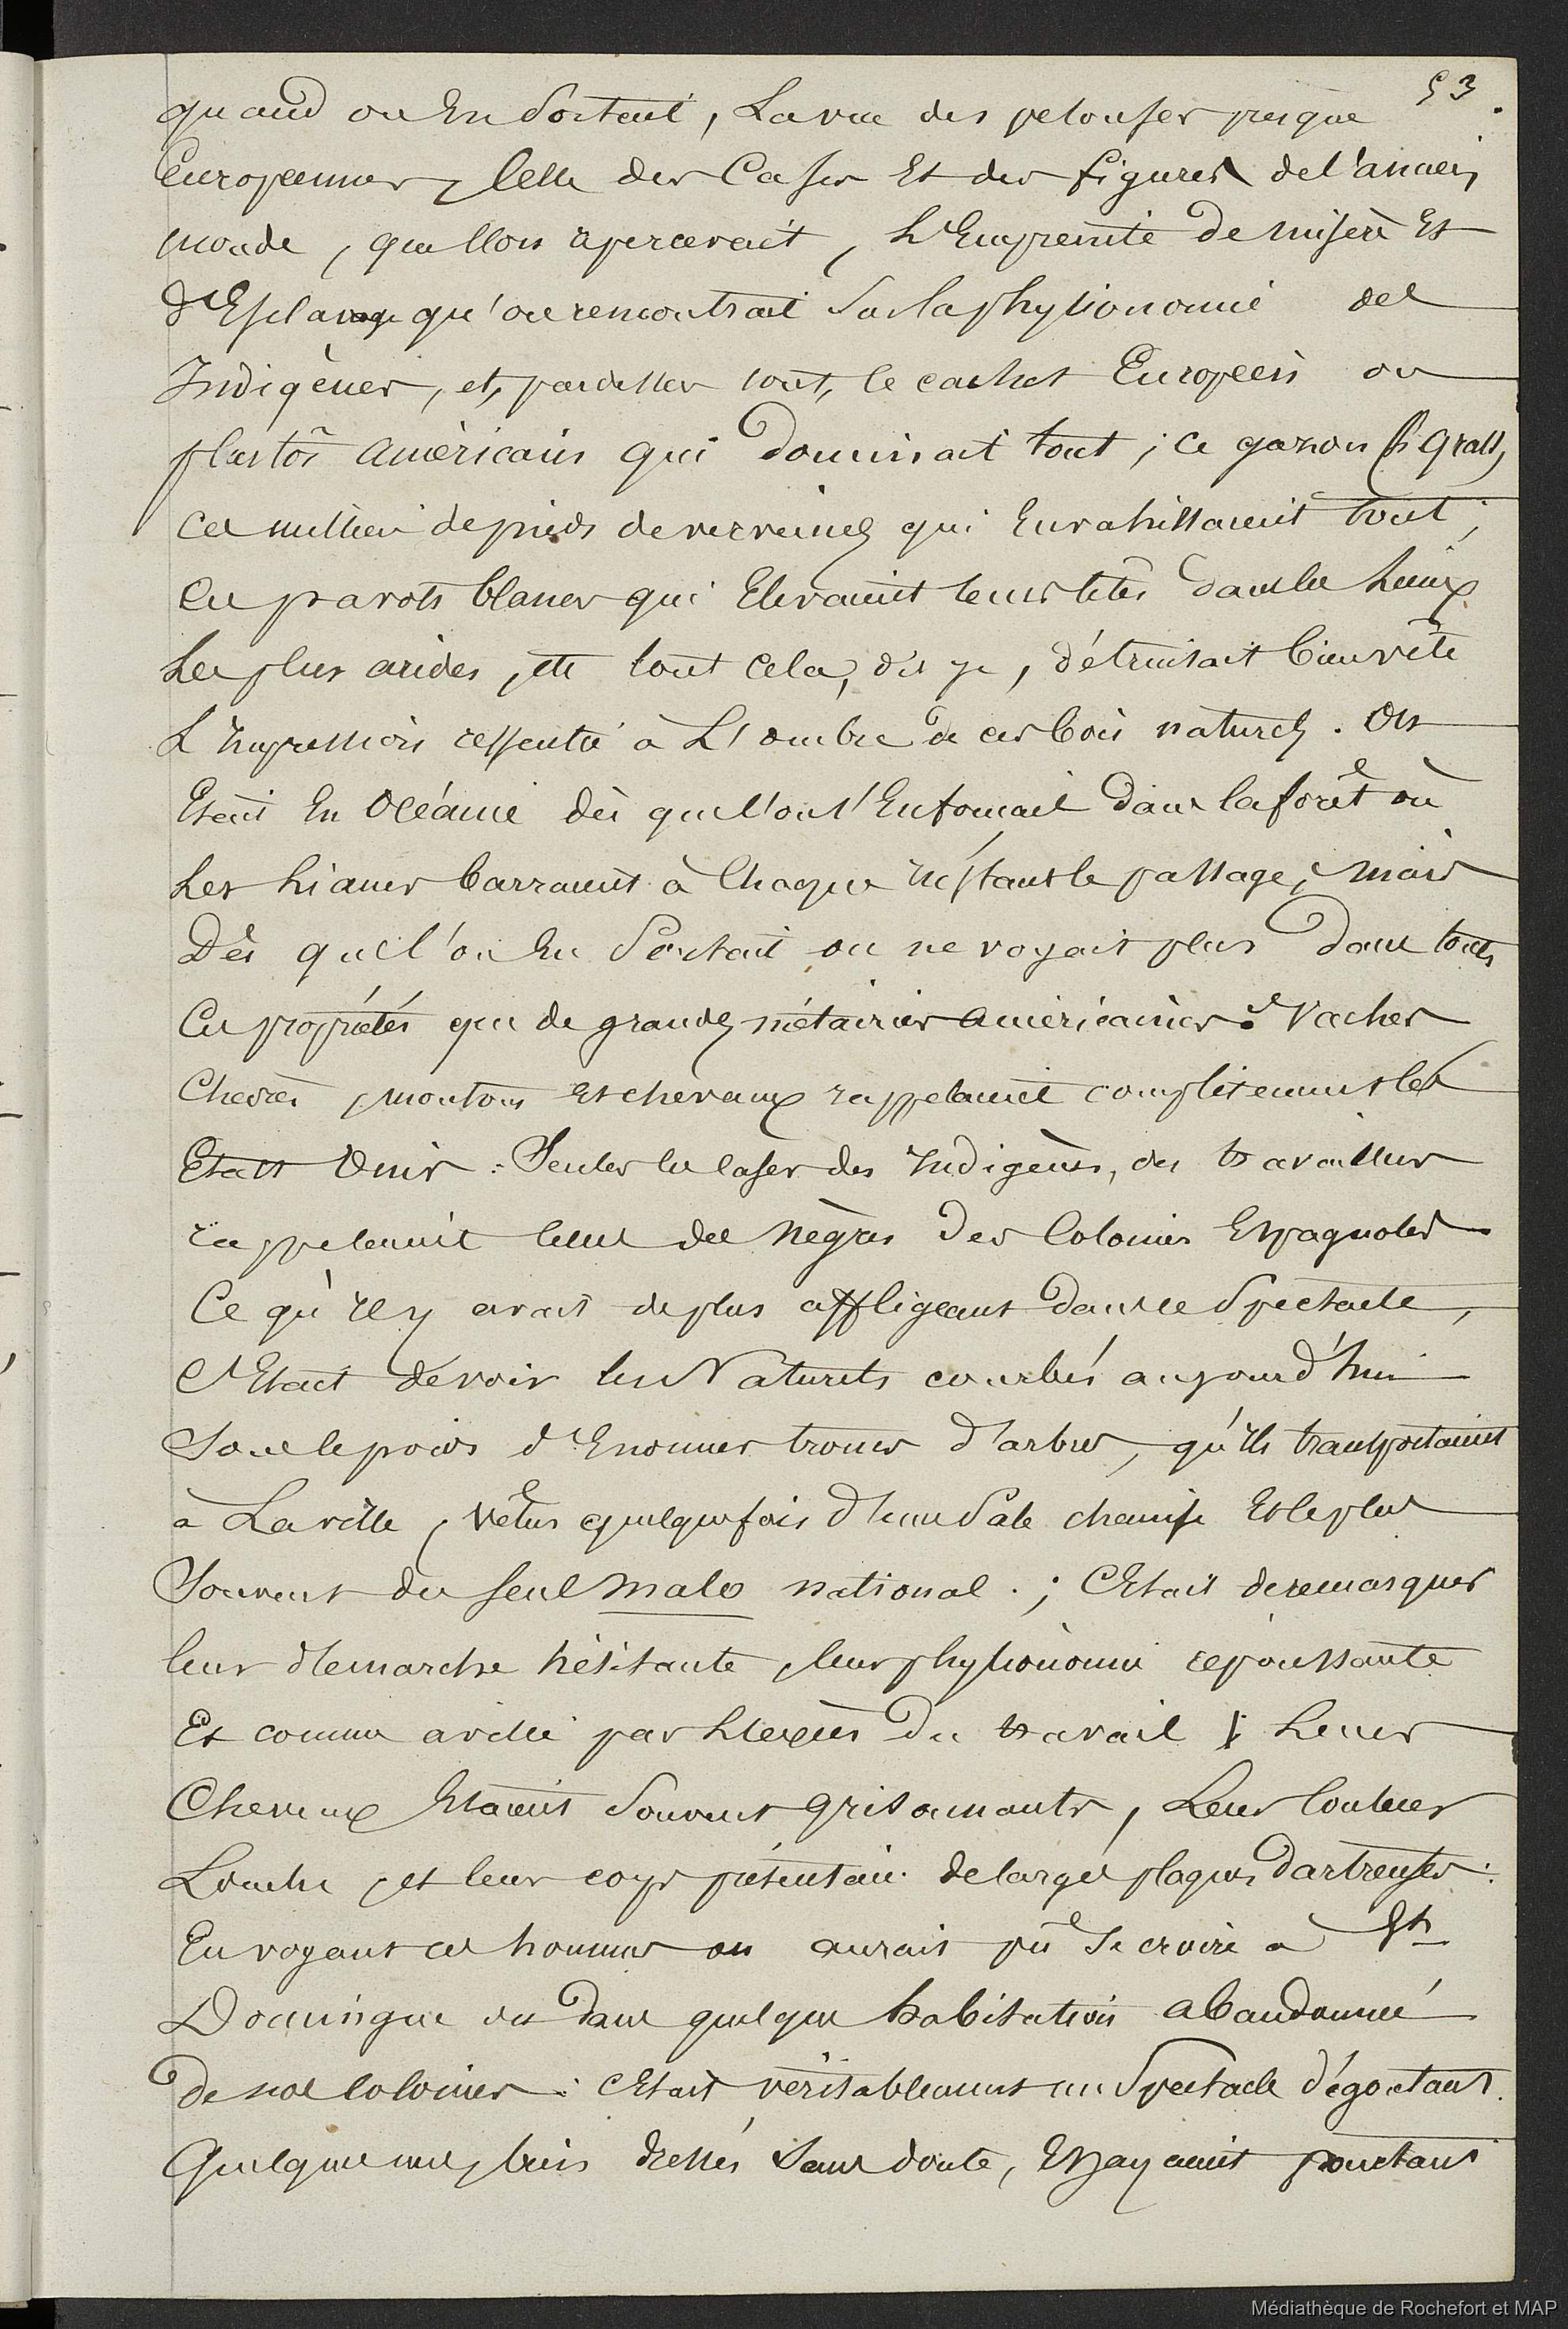 53.
quand on En Sortait, La vue des pelouses presque
Européennes, Celle des Cases Et des figures de l'ancien
monde, que l'on apercevait, L'Empreinte de misère Et
d'Esclavage qu'on rencontrait Sur la physionomie des
Indigènes, et, pardessus tout, le cachet Européen ou
plustôt américain qui dominait tout; ce gazon si gras,
ces milliers de pieds de verveines qui Envahissaient tout;
Ces pavots blancs qui Elevaient leurs têtes dans les Lieux
Les plus arides, tout cela, dis je, détruisait bien vîte
L'Impression ressentie à L'ombre de ces bois naturels. On
Etait En Océanie dès que l'on s'Enfonçait dans la forêt où
Les Lianes barraient à Chaque Instant le passage, mais
Dès que l'on En Sortait on ne voyait plus dans toutes
Ces propriétés que de grandes métairies américaines. Vaches
Chèvres, moutons Et chevaux rappelaient complitement les
Etats Unis : Seules les cases des Indigènes, des travailleurs
rappelaient celles des Nègres des Colonies Espagnoles
Ce qu'Il y avait de plus affligeant dans ce Spectacle,
C'Etait de voir les Naturels courbés aujourd'hui
Sous le poids d'Enormes troncs d'arbres, qu'Ils transportaient
à La ville, vêtus quelquefois d'une Sale chemise Et le plus
Souvent du seul malo national.; C'Etait de remarquer
leur démarche hésitante, leur physionomie repoussante
Et comme avilie par L'excès du travail ; Leurs
Cheveux Etaient Souvent grisonnants, Leurs Couleurs
Louche, et leur corps présentait de larges plaques dartreuses:
En voyant ces hommes on aurait pû Se croire à St
Domingue ou dans quelque habitation abandonnée
de nos Colonies : C'était véritablement un Spectacle dégoutant.
Quelques uns, bien dressés Sans doute, Essayaient pourtant
Médiathèque de Rochefort et MAP